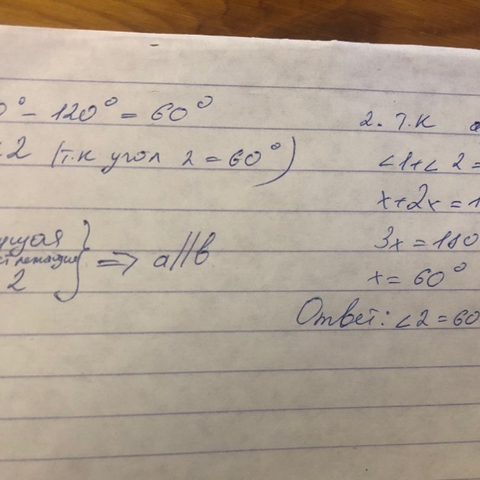 0° - 120° = 60°
<2 (т.к угол 2 = 60°)
ущая
лежащие
2
=> a//b
2. Т.К a
<1+<2 =
x+2x=1
3x=180
x=60°
Ответ: <2=60